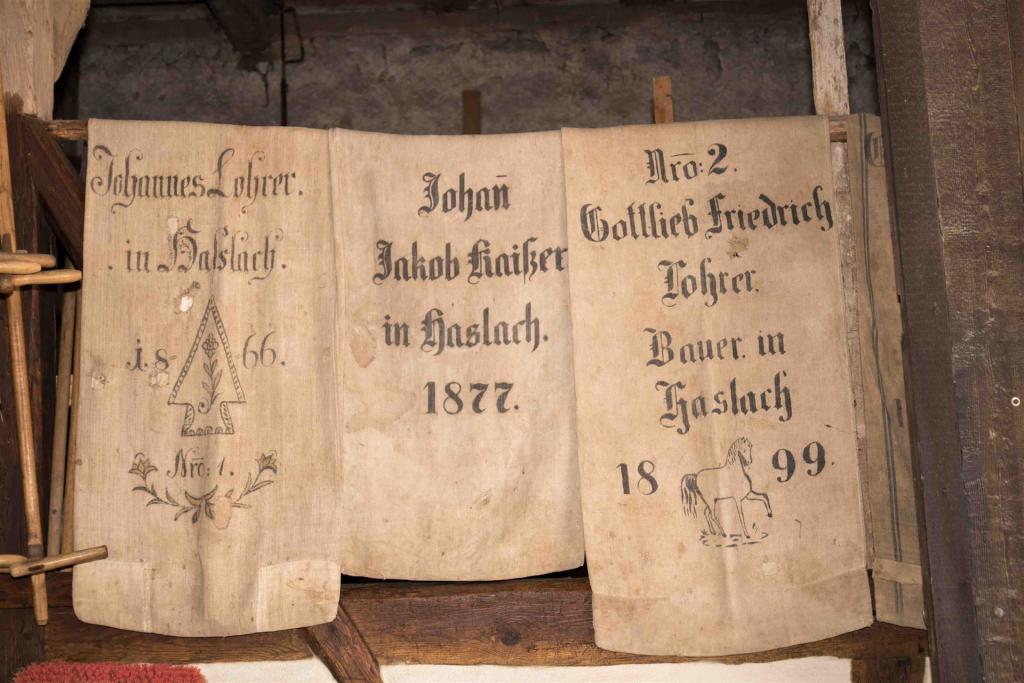 Johannes Lohrer.
in Haslach.
18 66.
Nrō: 1.
Johan̄
Jakob Kaißer
in Haslach.
1877.
Nrō: 2.
Gottlieb Friedrich
Lohrer.
Bauer. in
Haslach
18 99.